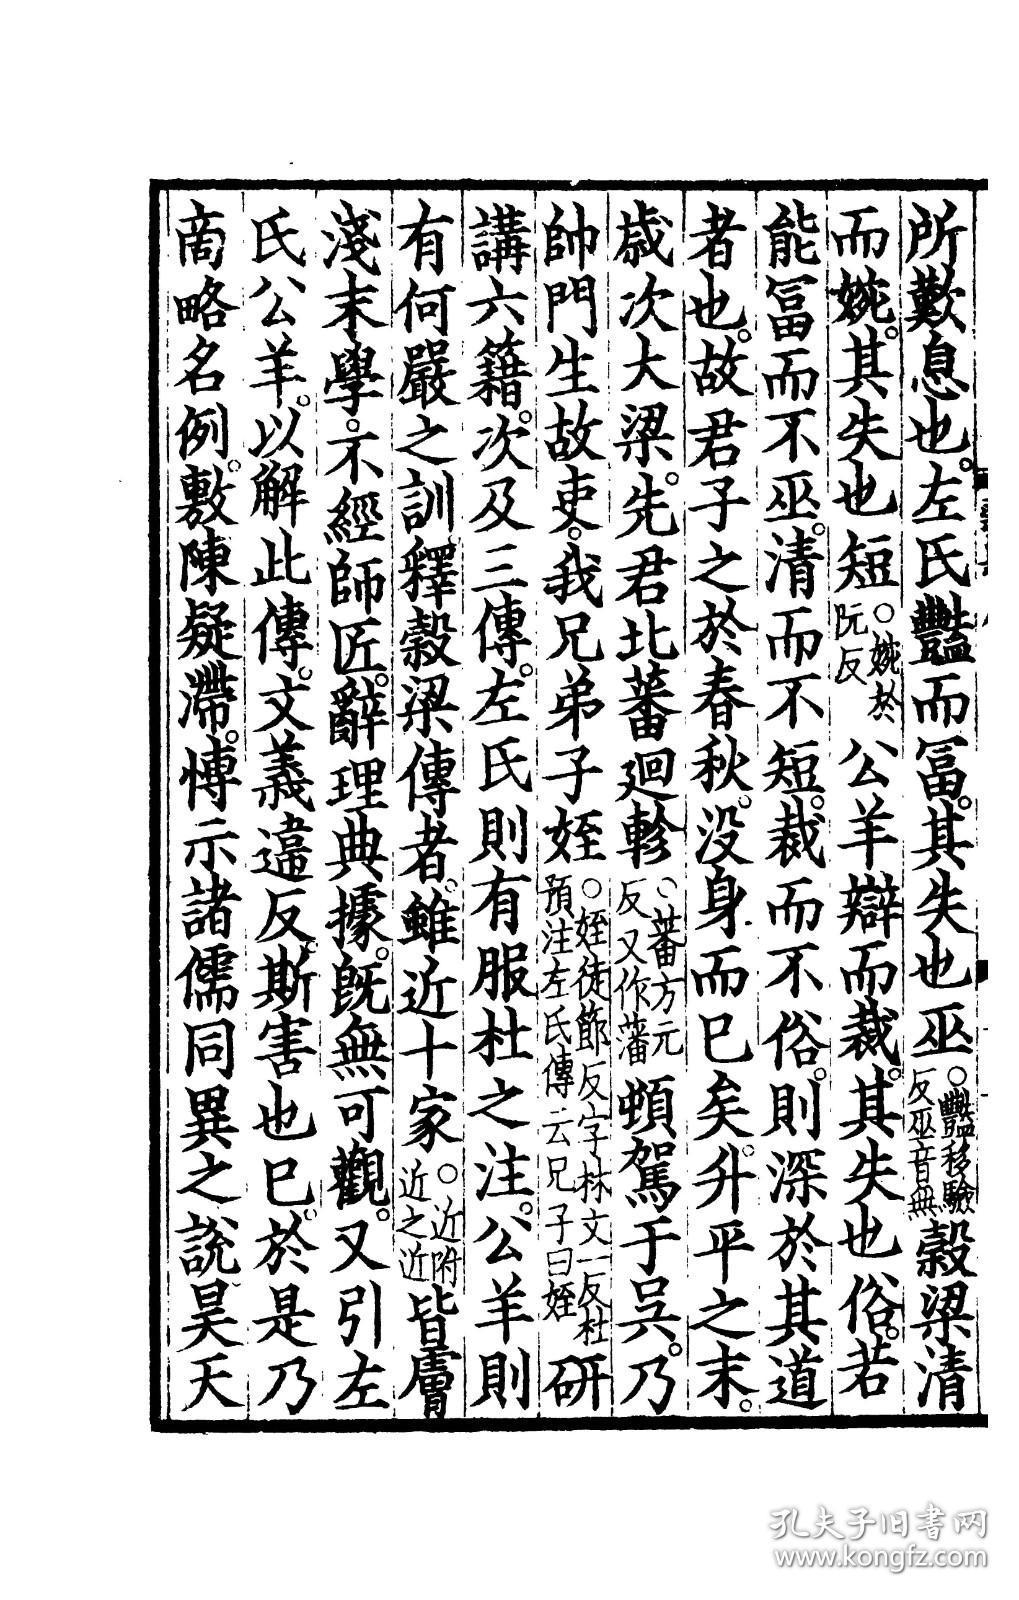 所歎息也左氏豔而冨其失也巫○豔移驗反巫音無穀梁清
而婉其失也短○婉於阮反公羊辯而裁其失也俗若
能冨而不巫清而不短裁而不俗則深於其道
者也故君子之於春秋没身而已矣升平之末
歳次大梁先君北蕃迴軫○蕃方元反又作藩頓駕于吳乃
帥門生故吏我兄弟子姪○姪徒節反字林丈一反杜預注左氏傳云兄子曰姪研
講六籍次及三傳左氏則有服杜之注公羊則
有何嚴之訓釋穀梁傳者雖近十家○近附近之近皆膚
淺末學不經師匠辭理典據既無可觀又引左
氏公羊以解此傳文義違反斯害也已於是乃
商略名例敷陳疑滯博示諸儒同異之説昊天
孔夫子旧書网
www.kongfz.com